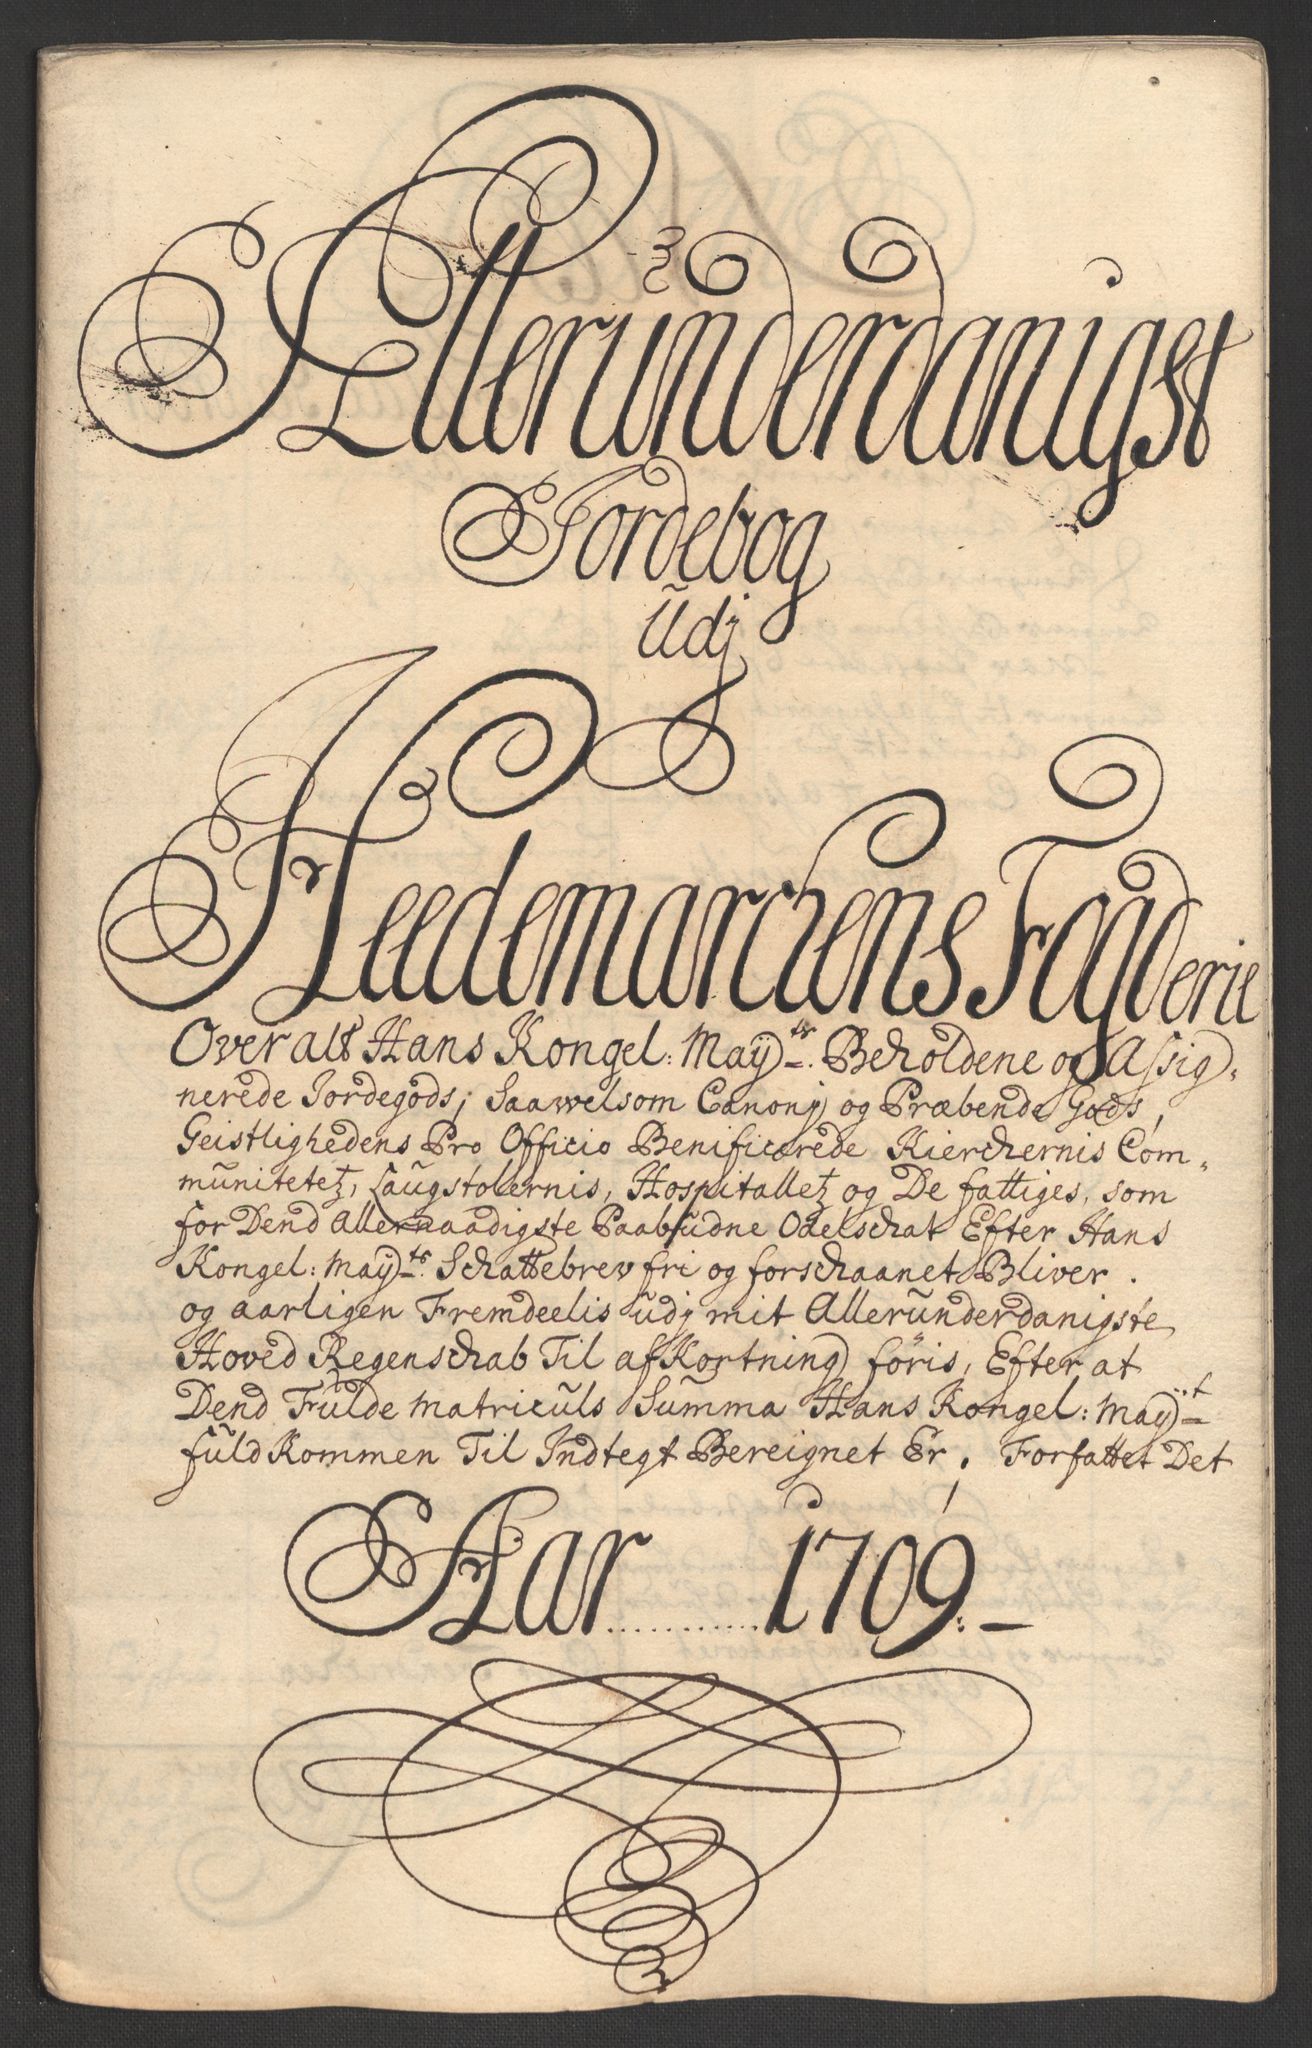 Alleründerdanigst
Jordebog
Udj
Heedemarchens Fogderie
Over alt Hans Kongel: Maÿtz. Beholdene og Assig-
nerede Jordegods; Saawelsom Canonj og Præbende Gods,
Geistlighedens Pro Officio Benificerede Kierchernis Com-
münitetz, Laugstolernis, Hospitalletz og De fattiges, som
for Dend Allernaadigste Paabüdne Odelschat Efter Hans
Kongel: Maÿtz. Schattebrev fri og forschaanet Bliver.
og aarligen Fremdeelis udj mit Alleründerdanigste
Hoved Regenschab Til afKortning föris, Efter at
Dend Fülde Matriculs Summa Hans Kongel: Maÿt
füldKommen Til Indtegt Bereignet Er, Forfattet Det
Aar ........... 1709.